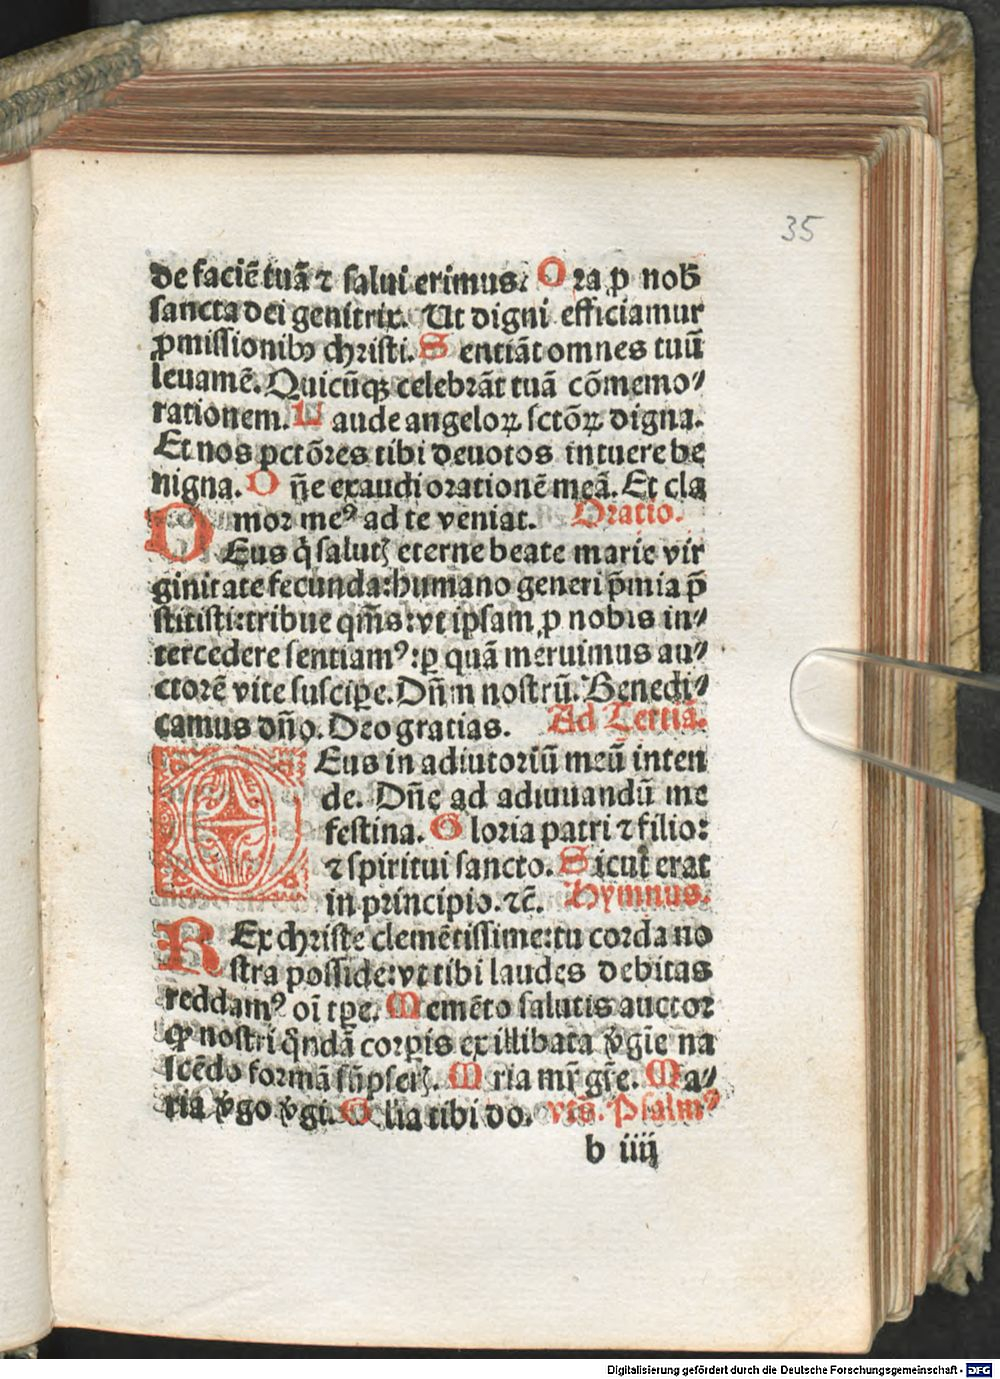 35
de faciē tuā ⁊ salui erimus. Ora ꝓ nob̄
sancta dei genitrix. Ut digni efficiamur
ꝓmissionibꝰ christi. Sentiāt omnes tuū
leuamē. Quicūqꝫ celebrāt tuā cōmemo⸗
rationem. Laude angeloꝝ sctōꝝ digna.
Et nos pctōres tibi deuotos intuere be
nigna. Dn̄e exaudi orationē meā. Et cla
mor meꝰ ad te veniat. Oratio.
DEus q̇ salutꝫ eterne beate marie vir
ginitate fecunda: humano generi p̄mia p̄
stitisti: tribue qm̄s: vt ipsam ꝓ nobis in⸗
tercedere sentiamꝰ: ꝑ quā meruimus au⸗
ctorē vite suscipe. Dn̄m nostrū. Benedi⸗
camus dn̄o. Deo gratias. Ad Tertiā.
DEus in adiutoriū meū inten
de. Dn̄e ad adiuuandū me
festina. Gloria patri ⁊ filio:
⁊ spiritui sancto. Sicut erat
in principio. ⁊c̄. Hymnus.
REx christe clemētissime: tu corda no
stra posside: vt tibi laudes debitas
reddamꝰ oī tꝑe. Memēto salutis auctor
ꝙ nostri q̇ndā corꝑis ex illibata v̇gīe na
scēdo formā sūpseriꝫ. Mria mr̄ gr̄e. Ma⸗
ria v̇go v̇gi. Glia tibi do. vt s̄. Psalmꝰ
b iiij
Digitalisierung gefördert durch die Deutsche Forschungsgemeinschaft - DFG